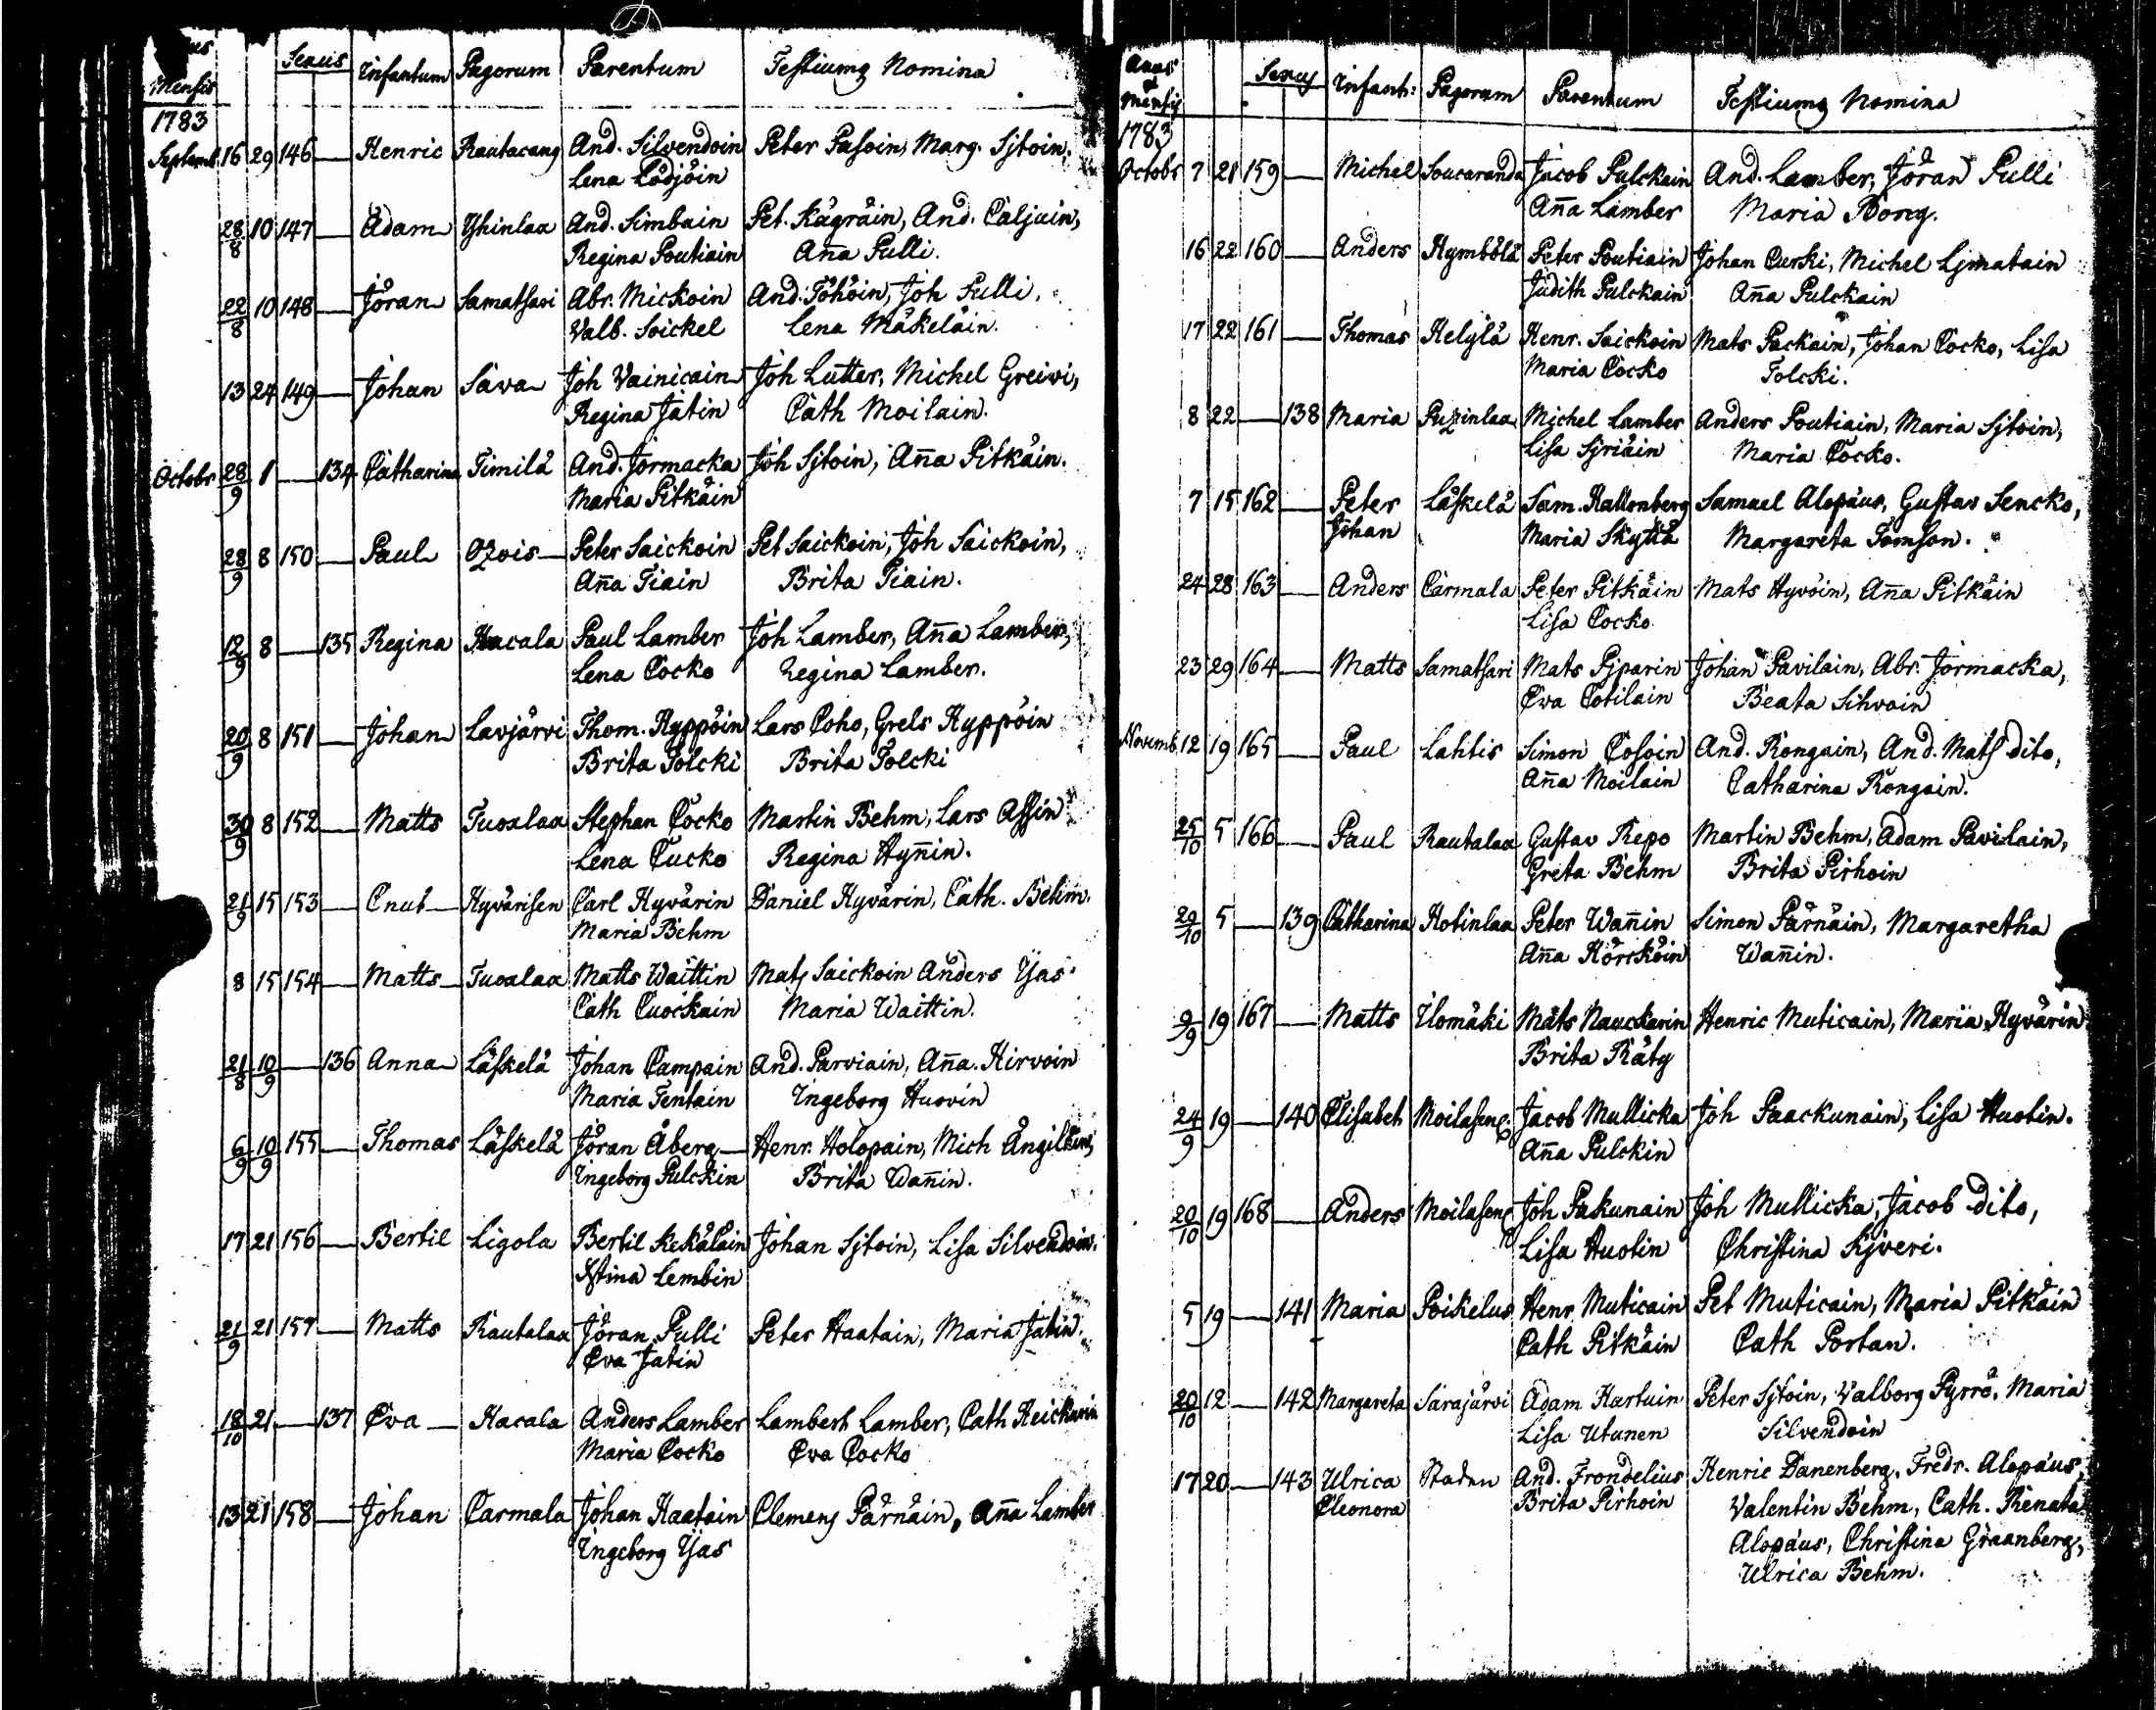 Mensis
Sexus Infantum Pagorum Parentum Testiumq Nomina
1783
Septemb. 16 29 146 — Henric Rautacang And. Silvendoin Peter Pasoin, Marg. Sjtoin.
Lena Lödjöin
28/8 10 147 — Adam Yhinlax And. Simbain Pet. Kägräin, And. Caljuin,
Regina Poutiain Aña Pulli.
22/8 10 148 — Jöran Samatsari Abr. Mickoin And. Töhöin, Joh Pulli,
Valb. Soickel Lena Mäkeläin.
13 24 149 — Johan Sava Joh Vainicain Joh Lutter, Michel Greivi,
Regina Jatin Cath Moilain.
Octobr 28/9 1 — 134 Catharina Timilä And. Jormacka Joh Sjtoin, Aña Pitkäin.
Maria Pitkäin
28/9 8 150 — Paul Ozois Peter Saickoin Pet Saickoin, Joh Saickoin,
Aña Tiain Brita Tiain.
12/9 8 — 135 Regina Hacala Paul Lamber Joh Lamber, Aña Lamber,
Lena Cocko Regina Lamber.
20/9 8 151 — Johan Lavjärvi Thom. Hyppöin Lars Coho, Grels Hyppöin
Brita Tolcki Brita Tolcki
30/9 8 152 — Matts Tuoxlax Stephan Cocko Martin Behm, Lars Assin
Lena Cucko Regina Hyñin.
21/9 15 153 — Cnut Hyvärisen Carl Hyvärin Daniel Hyvärin, Cath. Behm.
Maria Behm
8 15 154 — Matts Tuoxlax Matts Waittin Mats Saickoin Anders Yjas
Cath Cuockain Maria Waittin.
21/8 10/9 — 136 Anna Läskelä Johan Campain And. Parviain, Aña Hirvoin
Maria Tentain Ingeborg Huovin
6/9 10/9 155 — Thomas Läskelä Jöran Åberg Henr. Holopain, Mich Ängilkin,
Ingeborg Pulckin Brita Wañin.
17 21 156 — Bertil Ligola Bertil Kekäläin Johan Sjtoin, Lisa Silvendoin.
Stina Lembin
21/9 21 157 — Matts Rautalax Jöran Pulli Peter Haatain, Maria Jatin.
Eva Jatin
18/10 21 — 137 Eva Hacala Anders Lamber Lambert Lamber, Cath Heickurin
Maria Cocko Eva Cocko
13 21 158 — Johan Carmala Johan Haatain Clemens Pärnäin, Aña Lamber
Ingeborg Yjas
Anus
& Mensis Sexus Infant: Pagorum Parentum Testiumq Nomina
1783
Octobr 7 21 159 — Michel Soucaranda Jacob Pulckain And. Lamber, Jöran Pulli
Aña Lamber Maria Borg.
16 22 160 — Anders Hymbölä Peter Poutiain Johan Curki, Michel Ljmatain
Judith Pulckain Aña Pulckain
17 22 161 — Thomas Helylä Henr. Saickoin Mats Packain, Johan Cocko, Lisa
Maria Cocko Tolcki.
8 22 — 138 Maria Puzinlax Michel Lamber Anders Poutiain, Maria Sjtoin,
Lisa Sjriäin Maria Cocko.
7 15 162 — Peter Läskelä Sam. Hallonberg Samuel Alopäus, Gustav Sencko,
Johan Maria Skyttä Margareta Tomson.
24 28 163 — Anders Carmala Peter Pitkäin Mats Hyvöin, Aña Pitkäin
Lisa Cocko
23 29 164 — Matts Samatsari Mats Pjparin Johan Pavilain, Abr. Jormacka,
Eva Cotilain Beata Sihvoin
Novemb. 12 19 165 — Paul Lahtis Simon Cosoin And. Rongain, And. Mats dito,
Aña Moilain Catharina Rongain.
25/10 5 166 — Paul Rautalax Gustav Repo Martin Behm, Adam Pavilain,
Greta Behm Brita Pirhoin
29/10 5 — 139 Catharina Hotinlax Peter Wañin Simon Pärnäin, Margaretha
Aña Hörcköin Wañin.
9/9 19 167 — Matts Ilomäki Mats Nauckarin Henric Muticain, Maria Hyvärin
Brita Räty
24/9 19 — 140 Elisabet Moilasen Jacob Mullicka Joh Paackunain, Lisa Huotin.
Aña Pulckin
20/10 19 168 — Anders Moilasen Joh Pakunain Joh Mullicka, Jacob dito,
Lisa Huotin Christina Kjveri.
5 19 — 141 Maria Poikelus Henr. Muticain Pet Muticain, Maria Pitkäin
Cath Pitkäin Cath Portan.
20/10 12 — 142 Margareta Särajärvi Adam Hartuin Peter Sjtoin, Valborg Pyrrö, Maria
Lisa Utunen Silvendoin
17 20 — 143 Ulrica Staden And. Frondelius Henric Danenberg, Fredr. Alopäus,
Eleonora Brita Pirhoin Valentin Behm, Cath. Renata
Alopäus, Christina Graanberg,
Ulrica Behm.